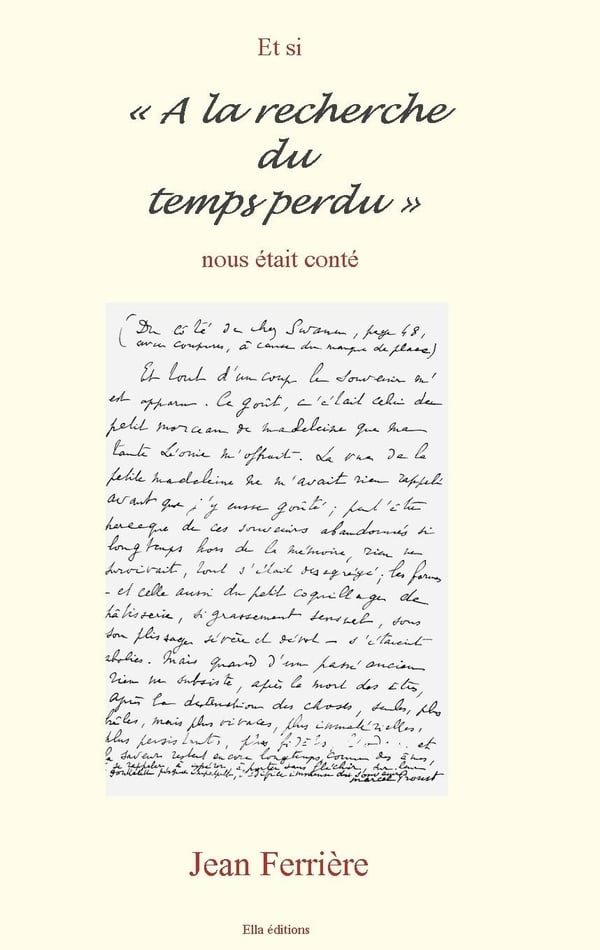 Et si
« A la recherche
du
temps perdu »
nous était conté
(Du côté de chez Swann, page 48,
avec coupures, à cause du manque de place)
Et tout d'un coup le souvenir m'
est apparu. Ce goût, c'était celui du
petit morceau de madeleine que ma
tante Léonie m'offrait. La vue de la
petite madeleine ne m'avait rien rappelé
avant que j'y eusse goûté ; peut-être
parceque de ces souvenirs abandonnés si
longtemps hors de la mémoire, rien ne
survivait, tout s'était désagrégé ; les formes
- et celle aussi du petit coquillage de
pâtisserie, si grassement sensuel, sous
son plissage sévère et dévot - s'étaient
abolies. Mais quand d'un passé ancien
rien ne subsiste, après la mort des êtres,
après la destruction des choses, seules, plus
frêles, mais plus vivaces, plus immatérielles,
plus persistantes, plus fidèles, et
la saveur restent encore longtemps, comme des âmes,
se rappeler, à espérer, à porter sans fléchir, sur leur
gouttelette presque impalpable, l'édifice immense du souvenir
Marcel Proust
Jean Ferrière
Ella éditions